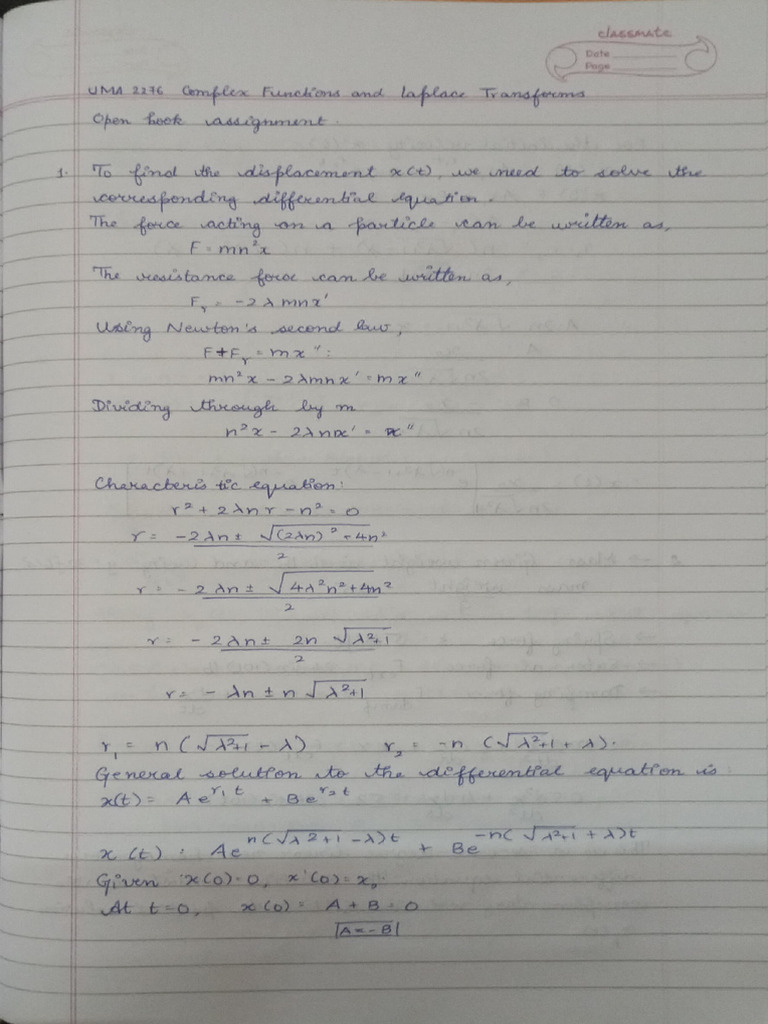 classmate
Date
Page
UMA 2276 Complex Functions and Laplace Transforms
Open book assignment.
1. To find the displacement x(t), we need to solve the
corresponding differential equation.
The force acting on a particle can be written as,
F = mn²x
The resistance force can be written as,
Fᵣ = -2λmnx'
Using Newton's second law,
F+Fᵣ = mx'':
mn²x - 2λmnx' = mx''
Dividing through by m
n²x - 2λnx' = x''
Characteristic equation:
r² + 2λnr - n² = 0
r = -2λn ± √(2λn)² + 4n² / 2
r = -2λn ± √4λ²n²+4n² / 2
r = -2λn ± 2n √λ²+1 / 2
r = -λn ± n √λ²+1
r₁ = n(√λ²+1 - λ) r₂ = -n (√λ²+1 + λ).
General solution to the differential equation is:
x(t) = Ae^r₁t + Be^r₂t
x(t) = Ae^n(√λ2+1 - λ)t + Be^-n(√λ²+1 + λ)t
Given x(0)=0, x'(0)=x₀.
At t=0, x(0) = A + B = 0
|A=-B|